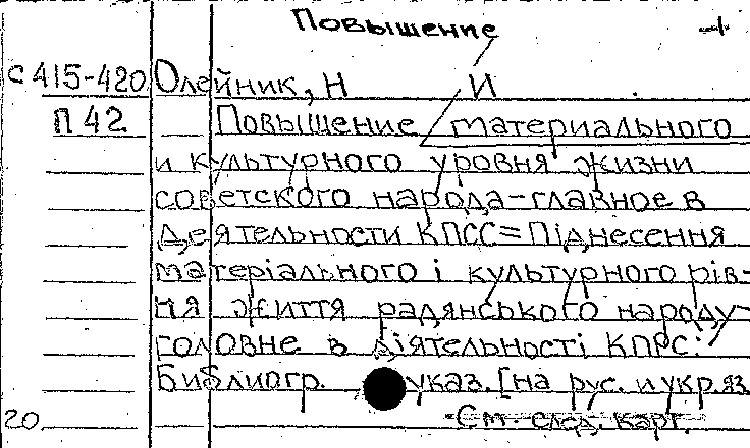 Повышение
С 415-420 Олейник, Н И
П 42 Повышение материального
и культурного уровня жизни
советского народа-главное в
деятельности КПСС=Піднесення
матеріального і культурного рів-
ня життя радянського народу-
головне в діяльності КПРС:
Библиогр. указ. [на рус. и укр. яз.
20 См. след. карт.